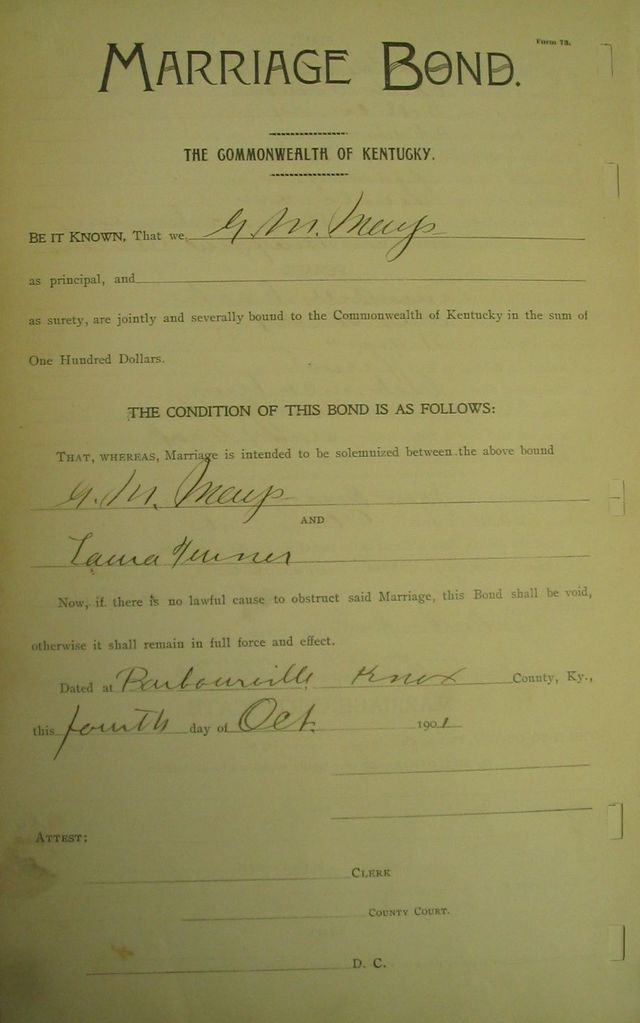 Form 73.
MARRIAGE BOND.
THE COMMONWEALTH OF KENTUCKY.
BE IT KNOWN, That we, G. M. Mays
as principal, and
as surety, are jointly and severally bound to the Commonwealth of Kentucky in the sum of
One Hundred Dollars.
THE CONDITION OF THIS BOND IS AS FOLLOWS:
THAT, WHEREAS, Marriage is intended to be solemnized between the above bound
G. M. Mays
AND
Laura Turner
Now, if there is no lawful cause to obstruct said Marriage, this Bond shall be void,
otherwise it shall remain in full force and effect.
Dated at Barbourville Knox County, Ky.,
this fourth day of Oct. 1901
ATTEST:
CLERK
COUNTY COURT.
D. C.